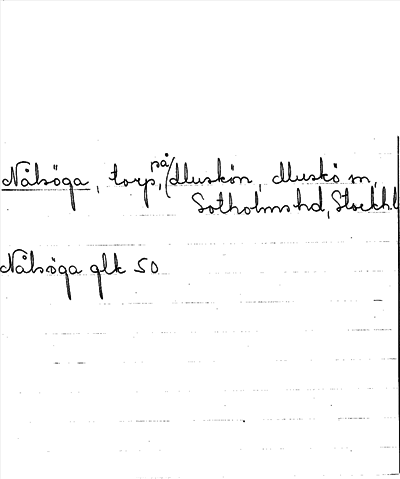 Nålsöga, torp, på Muskön, Muskö sn,
Sotholms hd, Stockh.l
Nålsöga glk 50